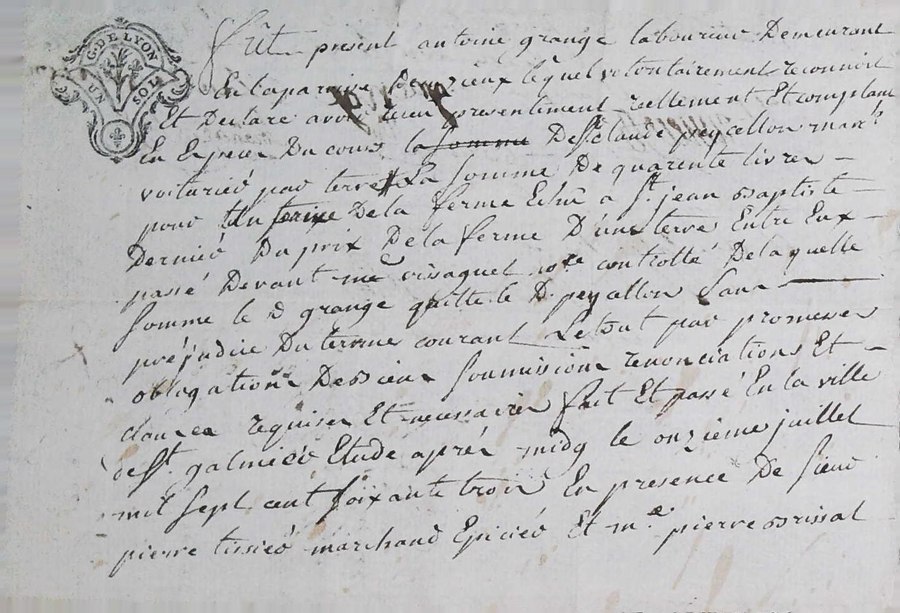 G. DE LYON
UN SOL
Fut present antoine grange laboureur Demeurant
En la paroisse lequel volontairement reconnoit
Et Declare avoir presentement reellement Et comptant
En Especes Du cours la somme De Sr Claude peycellon march
voiturier par terre La somme De quarente livres
pour Un terme De la ferme Echu a St jean Baptiste
Dernier Du prix De la ferme D'une terre Entre Eux
passé Devant me nore controllé De laquelle
somme le d grange quitte le D. peycellon sans
préjudice Du terme courant Le tout par promesses
obligation De biens soumissions renonciations Et
clauses requises Et necessaires fait Et passé En la ville
de St galmier Etude après midy le onzieme juillet
mil sept cent soixante trois En presence De sieur
pierre tissier marchand Epicier Et me pierre Brissat